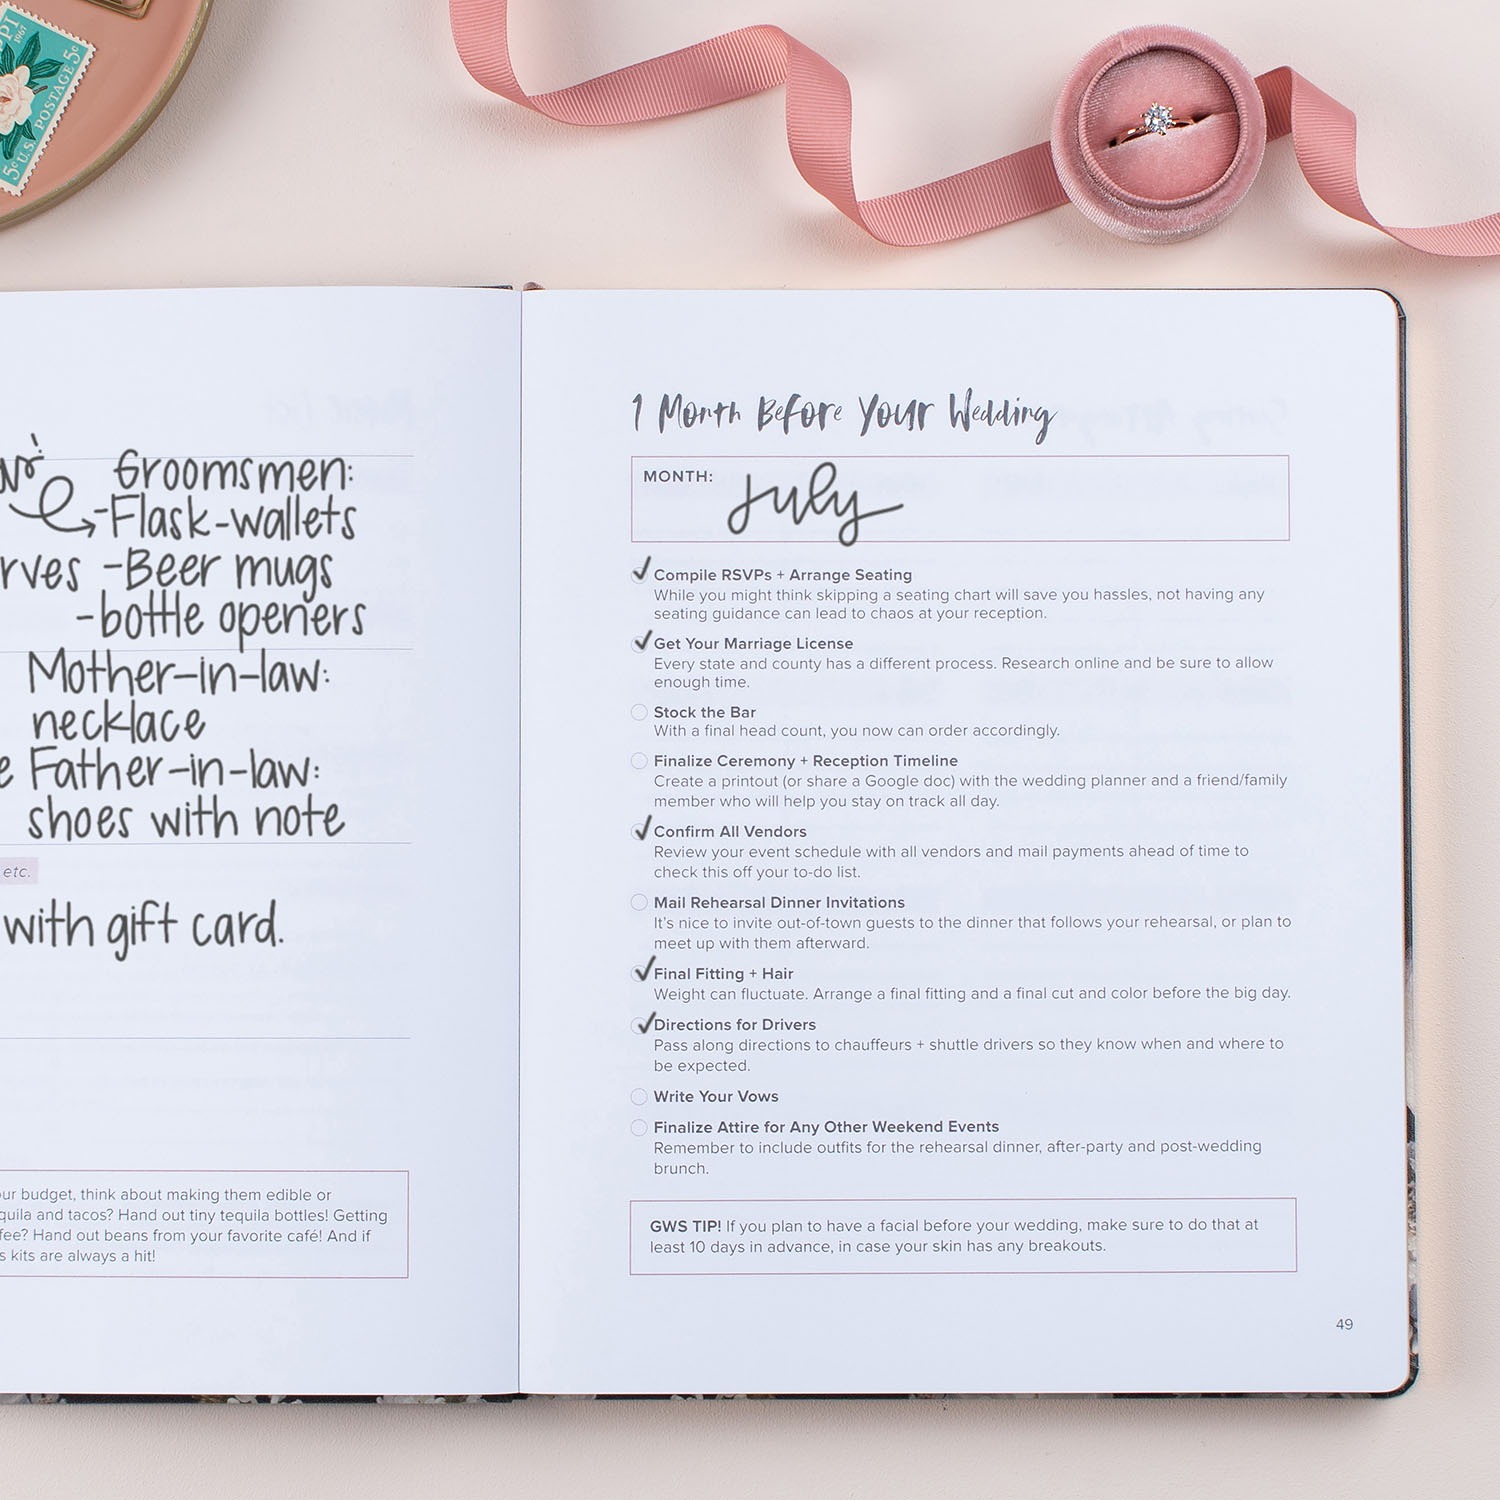 PI
1967
5c U.S. POSTAGE 5c
Groomsmen:
-Flask-wallets
-Beer mugs
-bottle openers
Mother-in-law:
necklace
Father-in-law:
shoes with note
etc.
with gift card.
budget, think about making them edible or
and tacos? Hand out tiny tequila bottles! Getting
Hand out beans from your favorite café! And if
kits are always a hit!
1 Month Before Your Wedding
MONTH: July
Compile RSVPs + Arrange Seating
While you might think skipping a seating chart will save you hassles, not having any
seating guidance can lead to chaos at your reception.
Get Your Marriage License
Every state and county has a different process. Research online and be sure to allow
enough time.
Stock the Bar
With a final head count, you now can order accordingly.
Finalize Ceremony + Reception Timeline
Create a printout (or share a Google doc) with the wedding planner and a friend/family
member who will help you stay on track all day.
Confirm All Vendors
Review your event schedule with all vendors and mail payments ahead of time to
check this off your to-do list.
Mail Rehearsal Dinner Invitations
It's nice to invite out-of-town guests to the dinner that follows your rehearsal, or plan to
meet up with them afterward.
Final Fitting + Hair
Weight can fluctuate. Arrange a final fitting and a final cut and color before the big day.
Directions for Drivers
Pass along directions to chauffeurs + shuttle drivers so they know when and where to
be expected.
Write Your Vows
Finalize Attire for Any Other Weekend Events
Remember to include outfits for the rehearsal dinner, after-party and post-wedding
brunch.
GWS TIP! If you plan to have a facial before your wedding, make sure to do that at
least 10 days in advance, in case your skin has any breakouts.
49